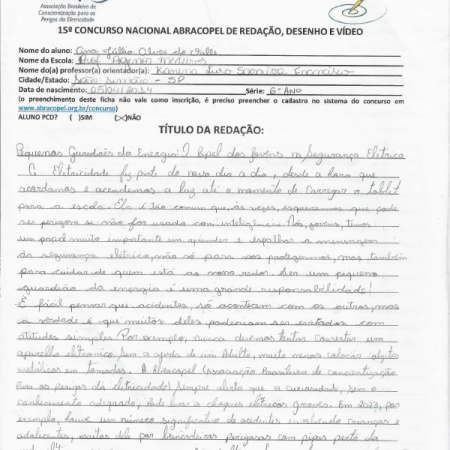 Associação Brasileira de
Conscientização para os
Perigos da Eletricidade
15º CONCURSO NACIONAL ABRACOPEL DE REDAÇÃO, DESENHO E VÍDEO
Nome do aluno: Ana Júlia Alves do
Nome da Escola: Prof Agenor Medeiros
Nome do(a) professor(a) orientador(a):
Cidade/Estado: São Simão - SP
Data de nascimento: 05/04/2014 Série: 6º Ano
(o preenchimento desta ficha não vale como inscrição, é preciso preencher o cadastro no sistema do concurso em
www.abracopel.org.br/concurso)
ALUNO PCD? ( )SIM (X)NÃO
TÍTULO DA REDAÇÃO:
Pequenos Guardiões da Energia: O Papel dos Jovens na Segurança Elétrica
A Eletricidade faz parte do nosso dia a dia, desde a hora que
acordamos e acendemos a luz até o momento de carregar o tablet
para a escola. Ela é tão comum que, às vezes, esquecemos que pode
ser perigosa se não for usada com inteligência. Nós, jovens, temos
um papel muito importante em aprender e espalhar a mensagem
da segurança elétrica, não só para nos protegermos, mas também
para cuidar de quem está ao nosso redor. Ser um pequeno
guardião da energia é uma grande responsabilidade!
É fácil pensar que acidentes só acontecem com os outros, mas
a verdade é que muitos deles poderiam ser evitados com
atitudes simples. Por exemplo, nunca devemos tentar consertar um
aparelho eletrônico sem a ajuda de um Adulto, muito menos colocar objetos
metálicos em tomadas. A Abracopel (Associação Brasileira de conscientização
para os perigos da eletricidade) sempre alerta que a curiosidade, sem o
conhecimento adequado, pode levar a choques elétricos graves. Em 2023, por
exemplo, houve um número significativo de acidentes envolvendo crianças e
adolescentes, muitos dele por brincadeiras perigosas com pipas perto da